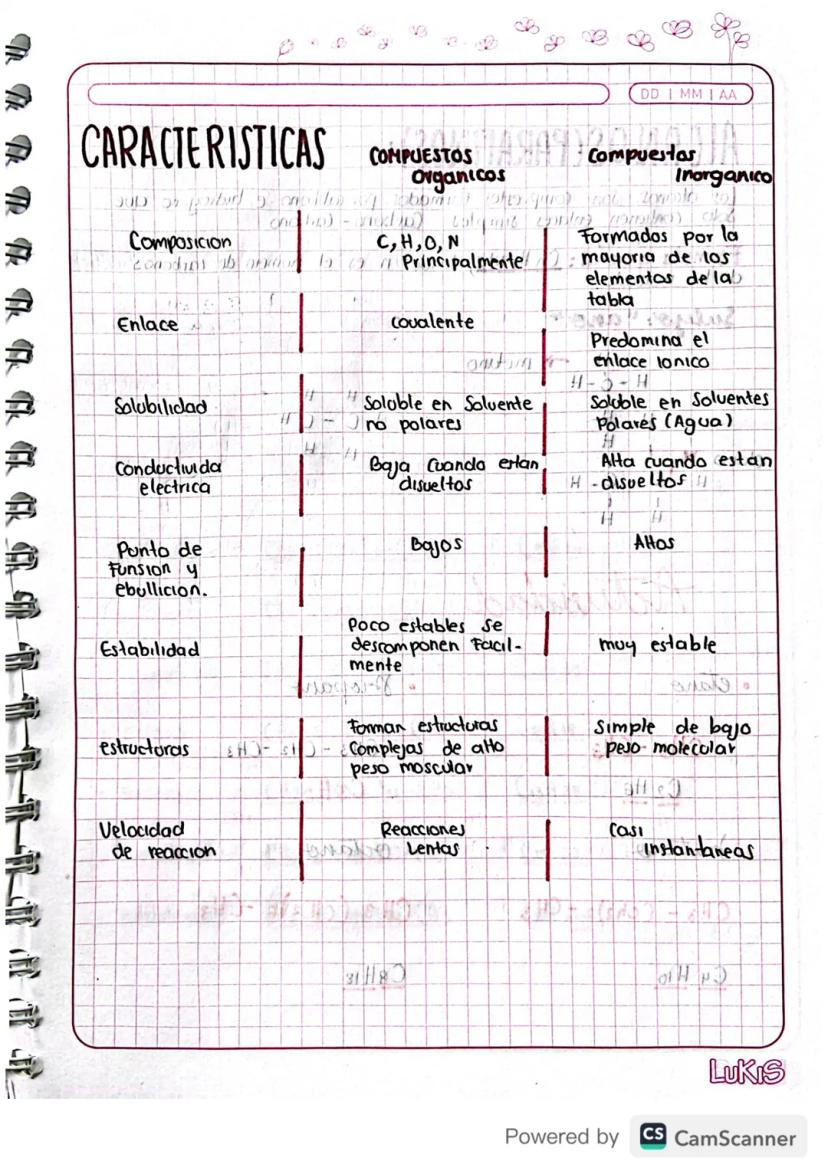 DD | MM | AA
CARACTERISTICAS
COMPUESTOS
Organicos
Compuestos
Inorganico
Composicion
C, H, O, N
Principalmente
Formados por la
mayoria de los
elementos de la
tabla
Enlace
covalente
Predomina el
enlace Ionico
Solubilidad
Soluble en Solvente
no polares
Soluble en Solventes
Polares (Agua)
Conductivida
electrica
Baja Cuando estan
disueltos
Alta cuando están
disueltos
Punto de
Funsion y
ebullicion.
Bajos
Altos
Estabilidad
Poco estables se
descomponen Facil-
mente
muy estable
estructuras
Forman estructuras
Complejas de alto
peso moscular
Simple de bajo
peso molecular
Velocidad
de reaccion
Reacciones
Lentas
Casi
instantaneas
LuKIS
Powered by CS CamScanner